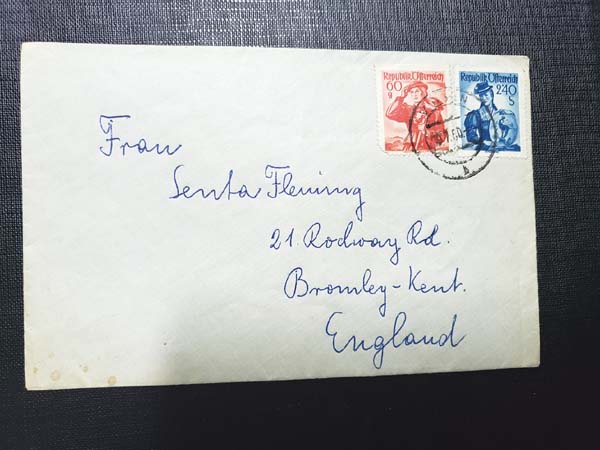 Republik Österreich
60
g
Republik Österreich
2·40
S
Frau
Senta Fleming
21. Rodway Rd.
Bromley-Kent.
England